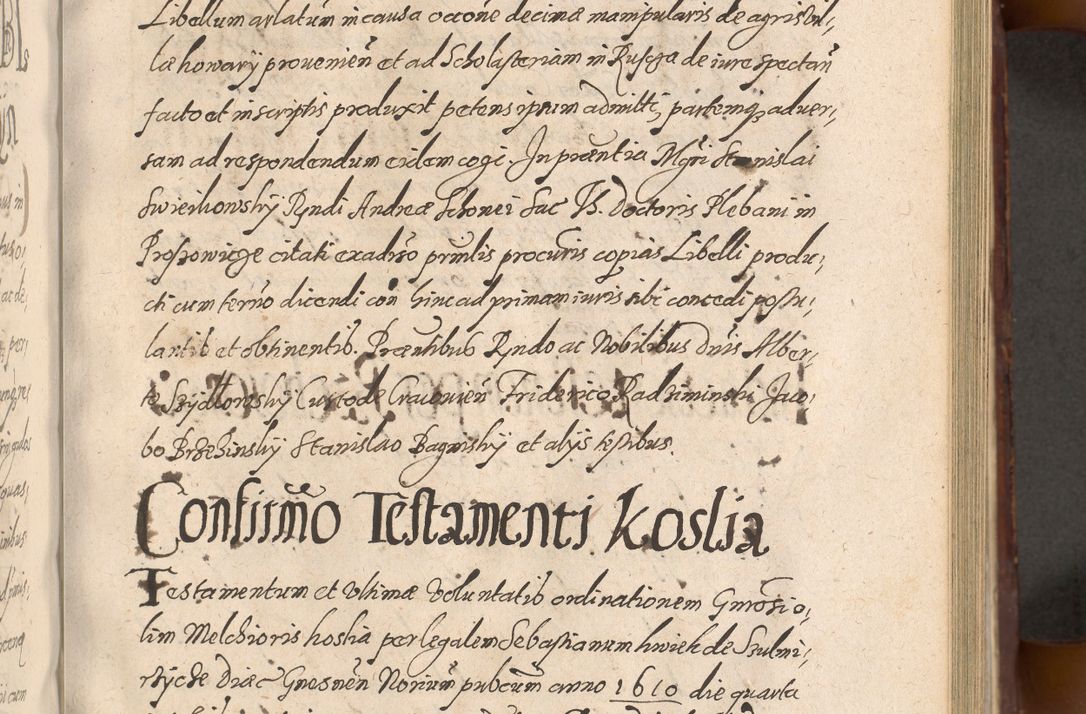 Libellum arlatum in causa occone decimæ manipularis de agris bil,
læhowary provenien et ad Scholasteriam in Ruscza de iure spectan
facto et in scriptis produxit petens ipsum admitti, partemq aduer,
sam ad respondendum eidem cogi. In præntia Mgri Stanislai
Swierkowsky Rndi Andreæ Schonei Sac Th. Doctoris Plebani in
Proszowicze citati exadiso prinlis procuris copias Libelli produ,
cti cum terno dicendi con hinc ad primam iuris sibi concedi postu,
lantis et obtinentis. Præntibus Rndo ac Nobilibus dnis Alber,
to Szydlowsky Custode Cracovien Friderico Radziminski Jaco,
bo Brzezinsky Stanislao Baginsky et alys testibus.
Confirmo Testamenti Koslia
Testamentum et Ultimæ Voluntatis ordinationem Gnrosi o,
lim Melchioris koslia per legalem Sebastianum kwiek de Szulmi,
rzycze Diæc Gnesnen Norium pubcum anno 1610 die quarta